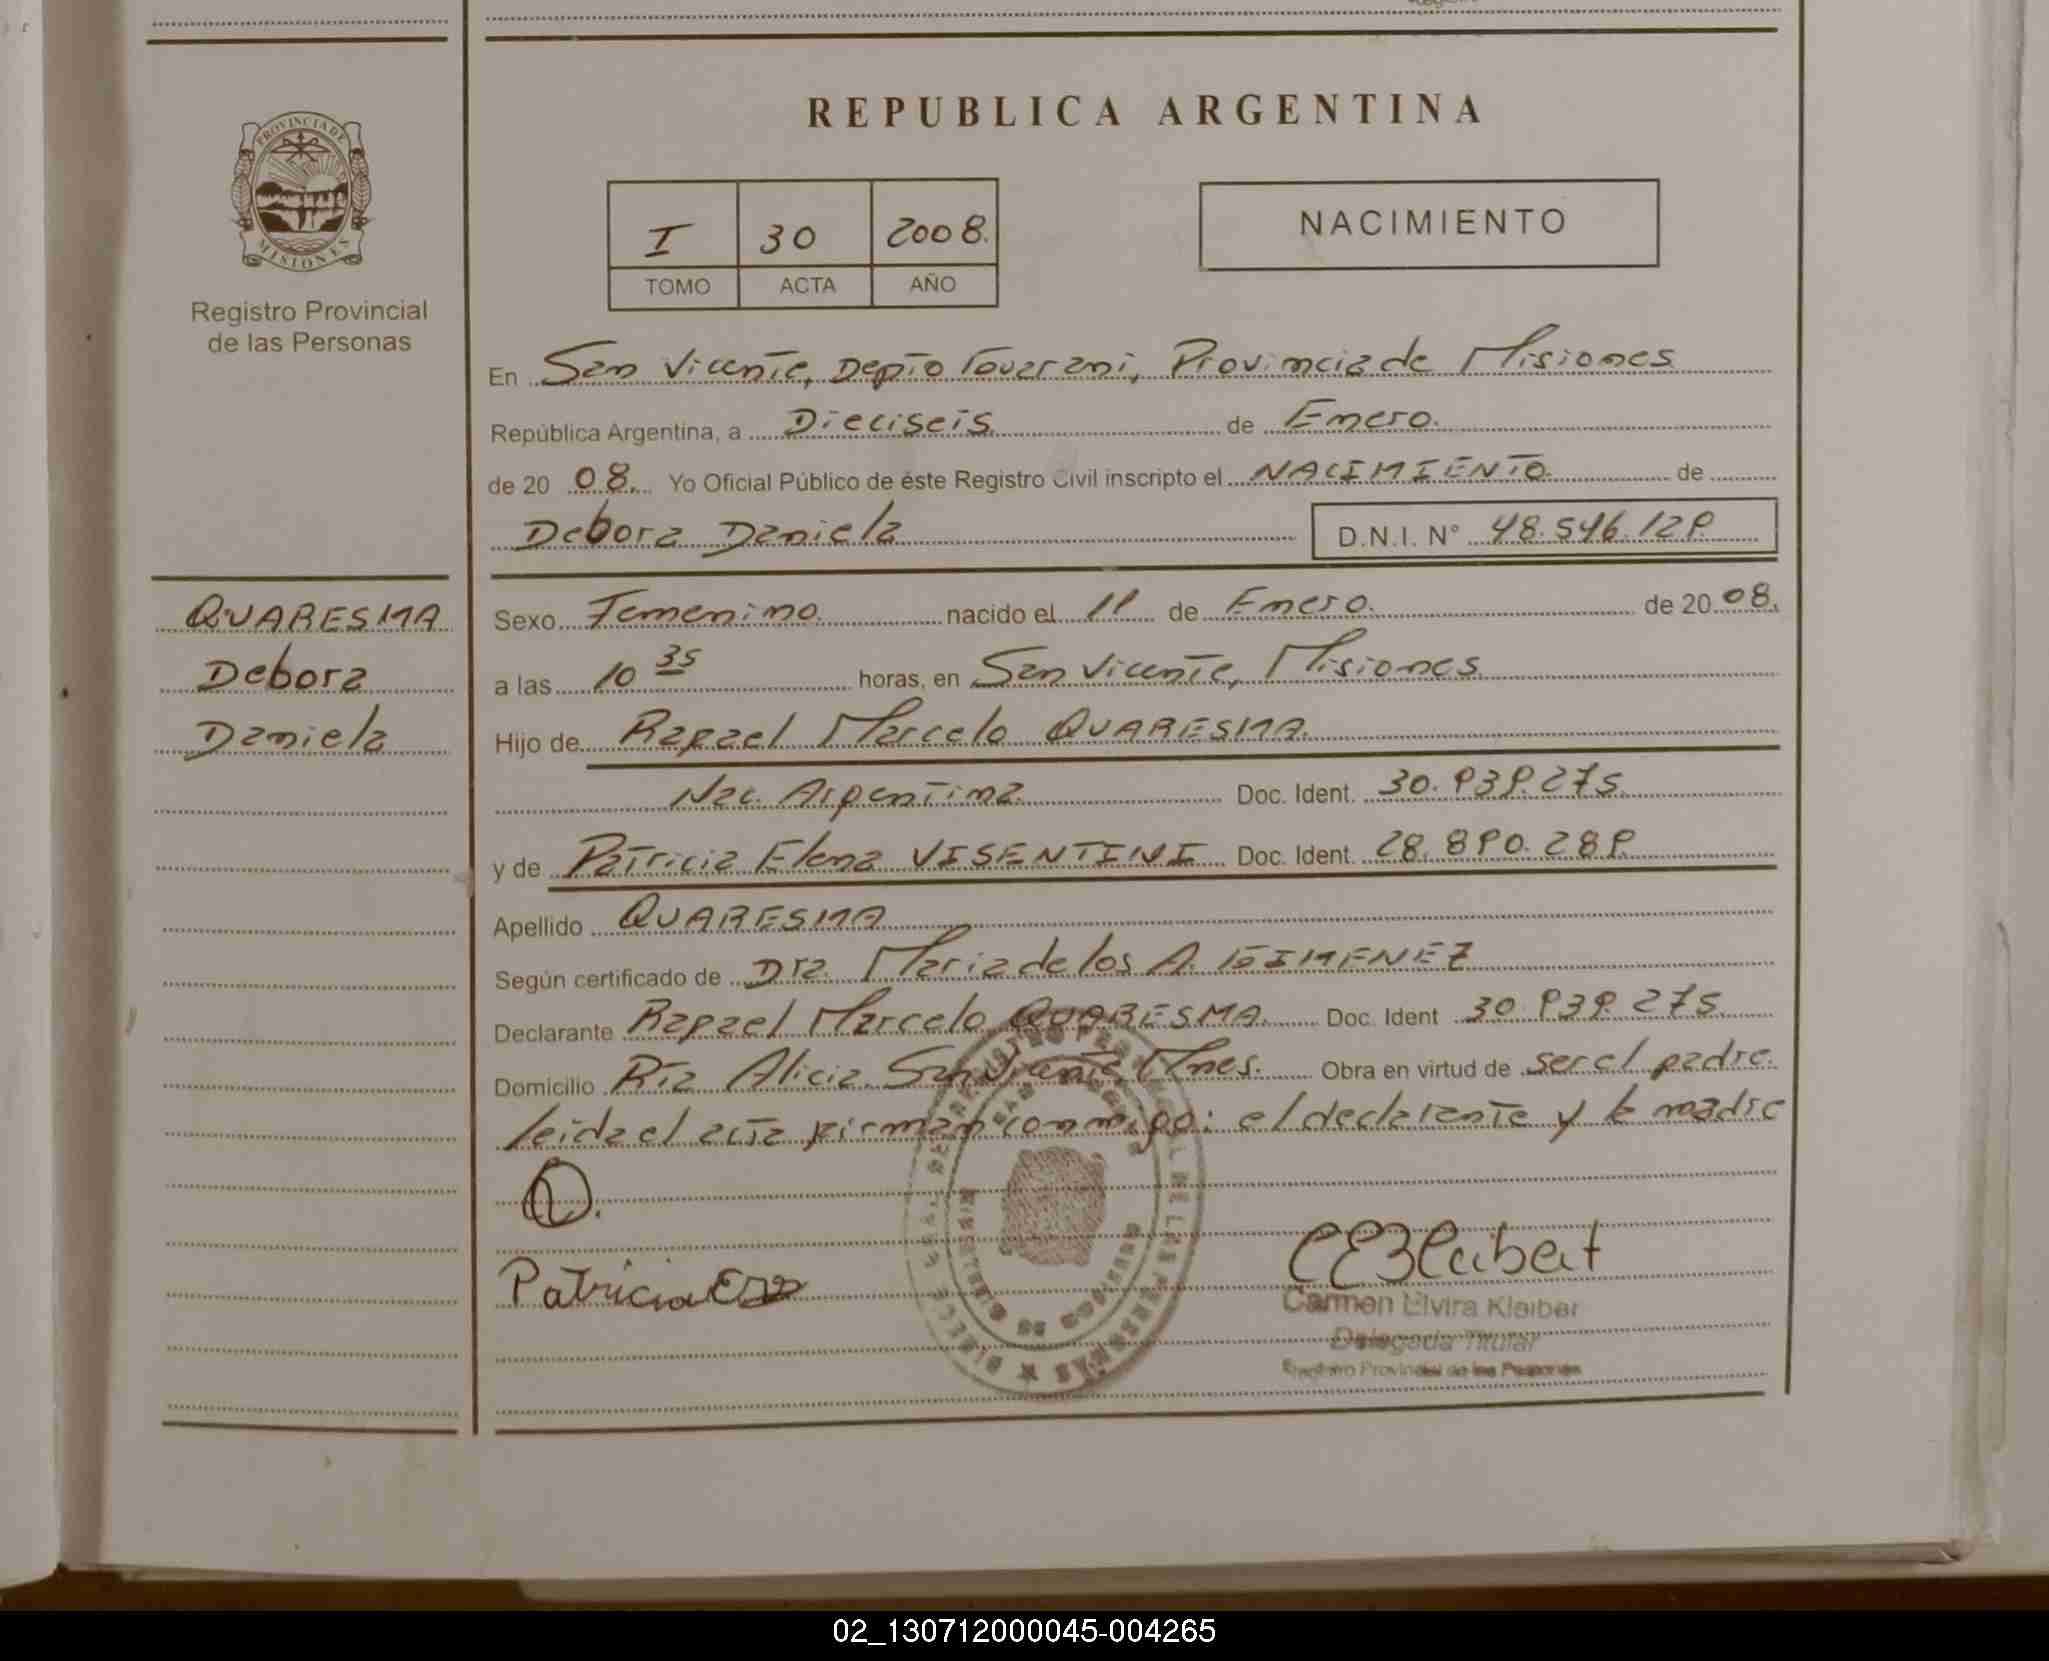 REPUBLICA ARGENTINA
PROVINCIA DE
MISIONES
Registro Provincial
de las Personas
I 30 2008.
TOMO ACTA AÑO
NACIMIENTO
En San Vicente, Depto Guarani, Provincia de Misiones
República Argentina, a Dieciseis de Enero.
de 20 08. Yo Oficial Público de éste Registro Civil inscripto el NACIMIENTO de
Debora Daniela D.N.I. N° 48.546.129
QUARESMA
Debora
Daniela
Sexo Femenino. nacido el 11 de Enero. de 20 08.
a las 10 35 horas, en San Vicente, Misiones.
Hijo de Rafael Marcelo QUARESMA.
Nac. Argentina Doc. Ident. 30.939.275.
y de Patricia Elena VISENTINI Doc. Ident. 28.890.289
Apellido QUARESMA
Según certificado de Dra. Maria de los A. GIMENEZ
Declarante Rafael Marcelo QUARESMA. Doc. Ident 30.939.275.
Domicilio Pia Alicia. San Vicente, Mnes. Obra en virtud de ser el padre.
leida el acta firman conmigo: el declarante y la madre
Patricia
Carmen Elvira Kleiber
Delegada Titular
Registro Provincial de las Personas
02_130712000045-004265